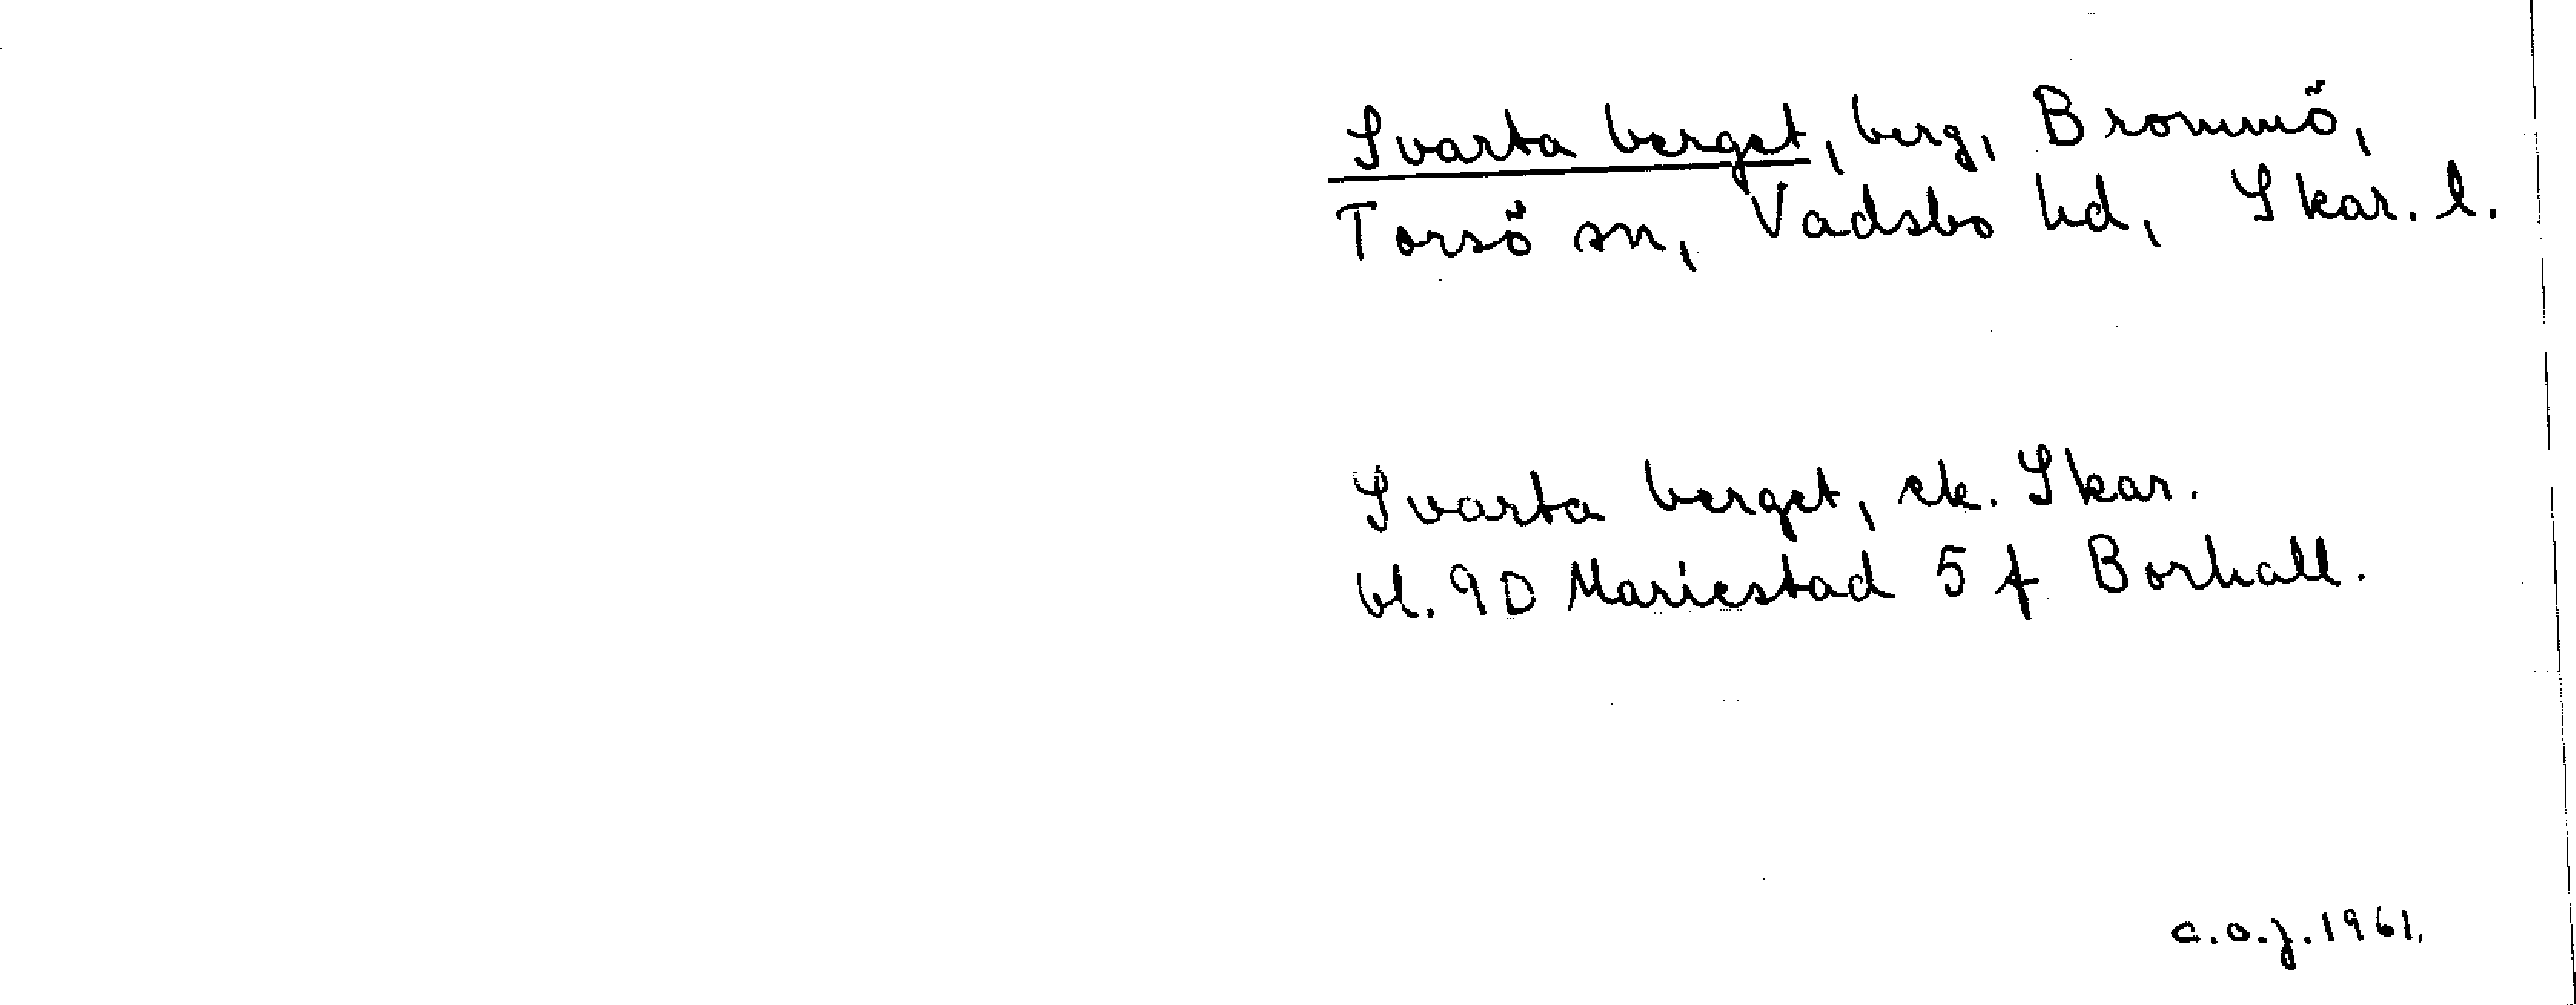 Svarta berget, berg, Brommö,
Torsö sn, Vadsbo hd, Skar. l.
Svarta berget, ek. Skar.
bl. 9D Mariestad 5 f Borhall.
c.o.j. 1961.